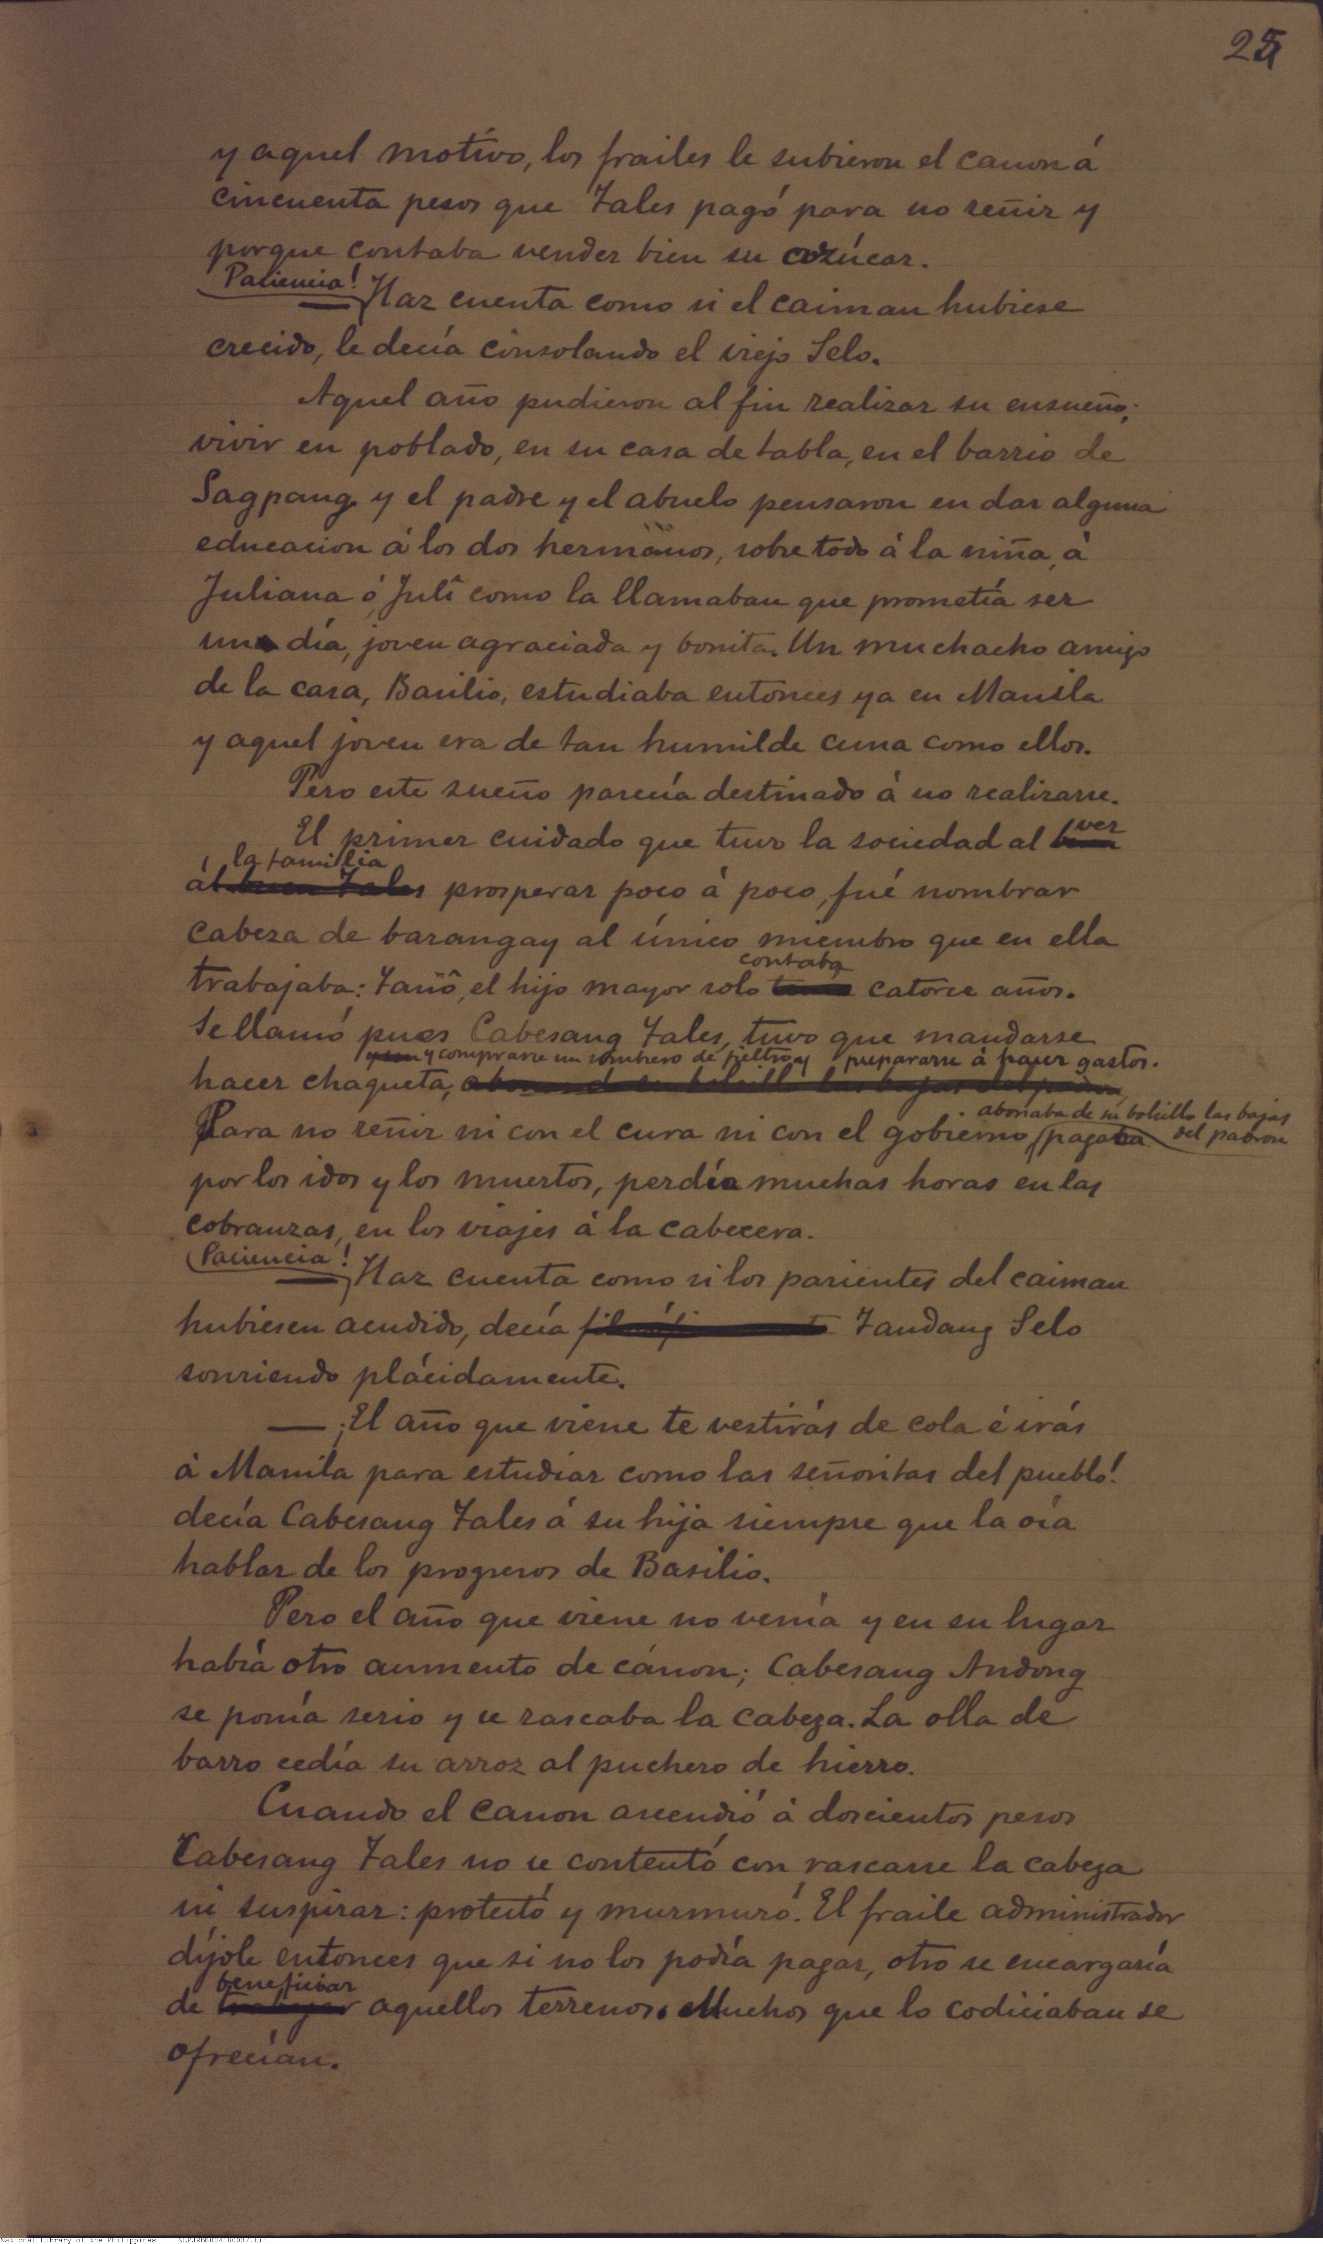 25
y aquel motivo, los frailes le subieron el canon á
cincuenta pesos que Tales pagó para no reñir y
porque contaba vender bien su azúcar.
Paciencia!
— Haz cuenta como si el caiman hubiese
crecido, le decía consolando el viejo Selo.
Aquel año pudieron al fin realizar su ensueño:
vivir en poblado, en su casa de tabla, en el barrio de
Sagpang y el padre y el abuelo pensaron en dar alguna
educacion á los dos hermanos, sobre todo á la niña, á
Juliana ó Julî como la llamaban que prometía ser
un día, joven agraciada y bonita. Un muchacho amigo
de la casa, Basilio, estudiaba entonces ya en Manila
y aquel joven era de tan humilde cuna como ellos.
Pero este sueño parecía destinado á no realizarse.
El primer cuidado que tuvo la sociedad al ver
la familia
á prosperar poco á poco, fué nombrar
cabeza de barangay al único miembro que en ella
contaba
trabajaba: Tanô, el hijo mayor solo catorce años.
Se llamó pues Cabesang Tales, tuvo que mandarse
y comprarse un sombrero de fieltro y prepararse á hacer gastos.
hacer chaqueta,
abonaba de su bolsillo las bajas
Para no reñir ni con el cura ni con el gobierno pagaba
del padron
por los idos y los muertos, perdía muchas horas en las
cobranzas, en los viajes á la cabecera.
Paciencia!
— Haz cuenta como si los parientes del caiman
hubiesen acudido, decía Tandang Selo
sonriendo plácidamente.
— ¡El año que viene te vestirás de cola é irás
á Manila para estudiar como las señoritas del pueblo!
decía Cabesang Tales á su hija siempre que la oía
hablar de los progresos de Basilio.
Pero el año que viene no venía y en su lugar
había otro aumento de cánon; Cabesang Andong
se ponía serio y se rascaba la cabeza. La olla de
barro cedía su arroz al puchero de hierro.
Cuando el canon ascendió á doscientos pesos
Cabesang Tales no se contentó con rascarse la cabeza
ni suspirar: protestó y murmuró. El fraile administrador
díjole entonces que si no los podía pagar, otro se encargaría
beneficiar
de aquellos terrenos. Muchos que lo codiciaban se
ofrecían.